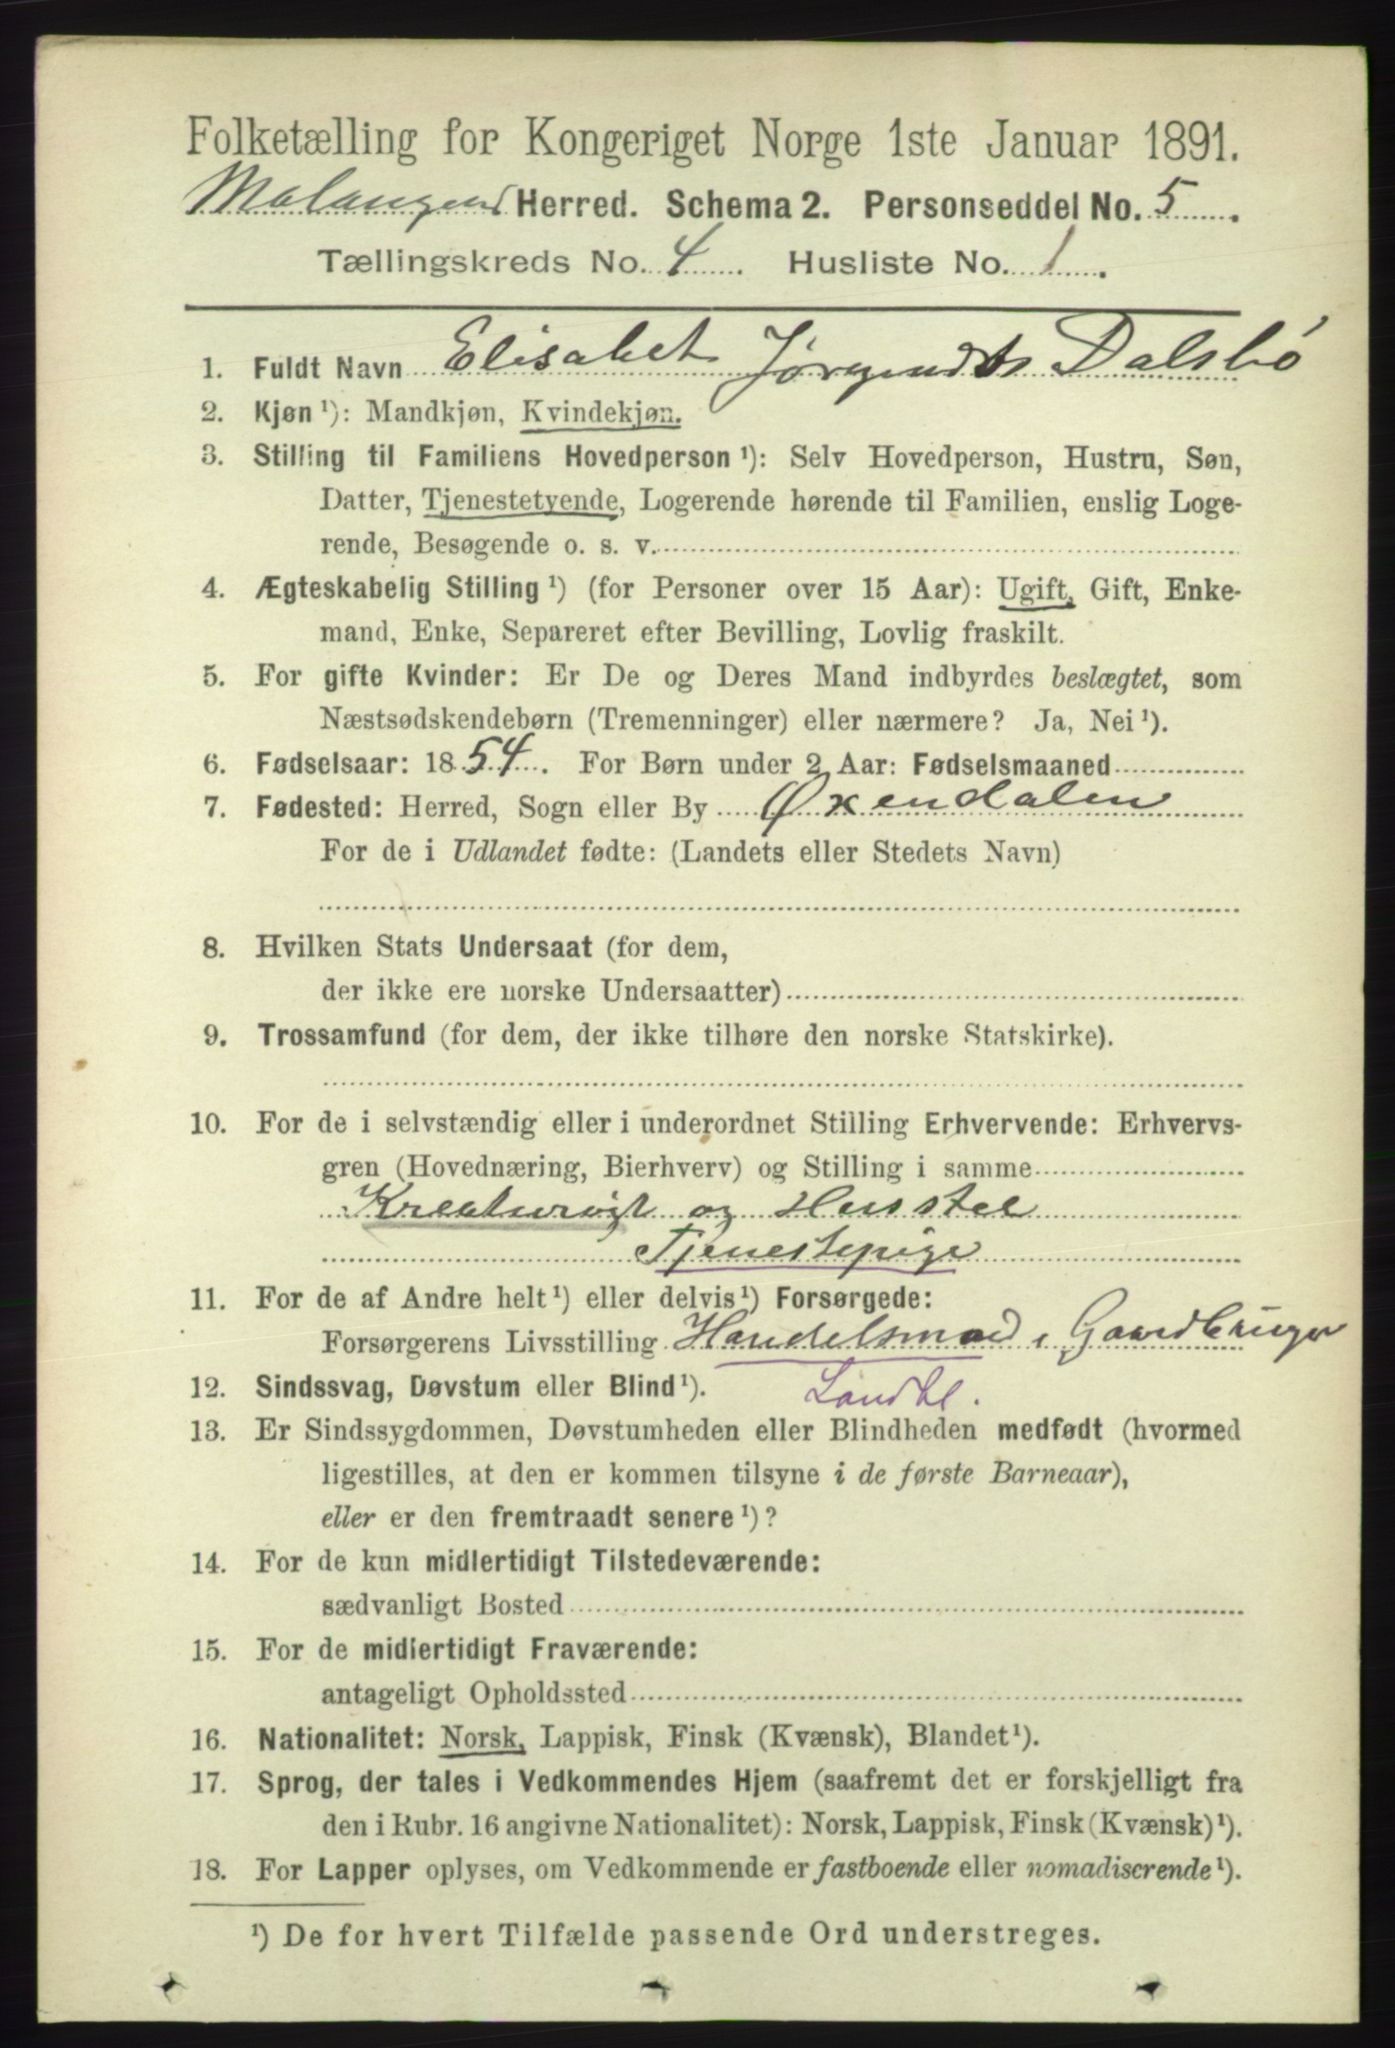 Folketælling for Kongeriget Norge 1ste Januar 1891.
Malangens Herred. Schema 2. Personseddel No. 5.
Tællingskreds No. 4. Husliste No. 1.
1. Fuldt Navn Elisabet Jørgendts Dalsbø
2. Kjøn ¹): Mandkjøn, Kvindekjøn.
3. Stilling til Familiens Hovedperson ¹): Selv Hovedperson, Hustru, Søn,
Datter, Tjenestetyende, Logerende hørende til Familien, enslig Loge-
rende, Besøgende o. s. v.
4. Ægteskabelig Stilling ¹) (for Personer over 15 Aar): Ugift, Gift, Enke-
mand, Enke, Separeret efter Bevilling, Lovlig fraskilt.
5. For gifte Kvinder: Er De og Deres Mand indbyrdes beslægtet, som
Næstsødskendebørn (Tremenninger) eller nærmere? Ja, Nei ¹).
6. Fødselsaar: 1854. For Børn under 2 Aar: Fødselsmaaned
7. Fødested: Herred, Sogn eller By Øxendalen
For de i Udlandet fødte: (Landets eller Stedets Navn)
8. Hvilken Stats Undersaat (for dem,
der ikke ere norske Undersaatter)
9. Trossamfund (for dem, der ikke tilhøre den norske Statskirke).
10. For de i selvstændig eller i underordnet Stilling Erhvervende: Erhvervs-
gren (Hovednæring, Bierhverv) og Stilling i samme
Kreaturrøgt og Husstel
Tjenestepige
11. For de af Andre helt ¹) eller delvis ¹) Forsørgede:
Forsørgerens Livsstilling Handelsmand, Gaardbruger
12. Sindssvag, Døvstum eller Blind ¹). Landh.
13. Er Sindssygdommen, Døvstumheden eller Blindheden medfødt (hvormed
ligestilles, at den er kommen tilsyne i de første Barneaar),
eller er den fremtraadt senere ¹)?
14. For de kun midlertidigt Tilstedeværende:
sædvanligt Bosted
15. For de midlertidigt Fraværende:
antageligt Opholdssted
16. Nationalitet: Norsk, Lappisk, Finsk (Kvænsk), Blandet ¹).
17. Sprog, der tales i Vedkommendes Hjem (saafremt det er forskjelligt fra
den i Rubr. 16 angivne Nationalitet): Norsk, Lappisk, Finsk (Kvænsk) ¹).
18. For Lapper oplyses, om Vedkommende er fastboende eller nomadiserende ¹).
¹) De for hvert Tilfælde passende Ord understreges.